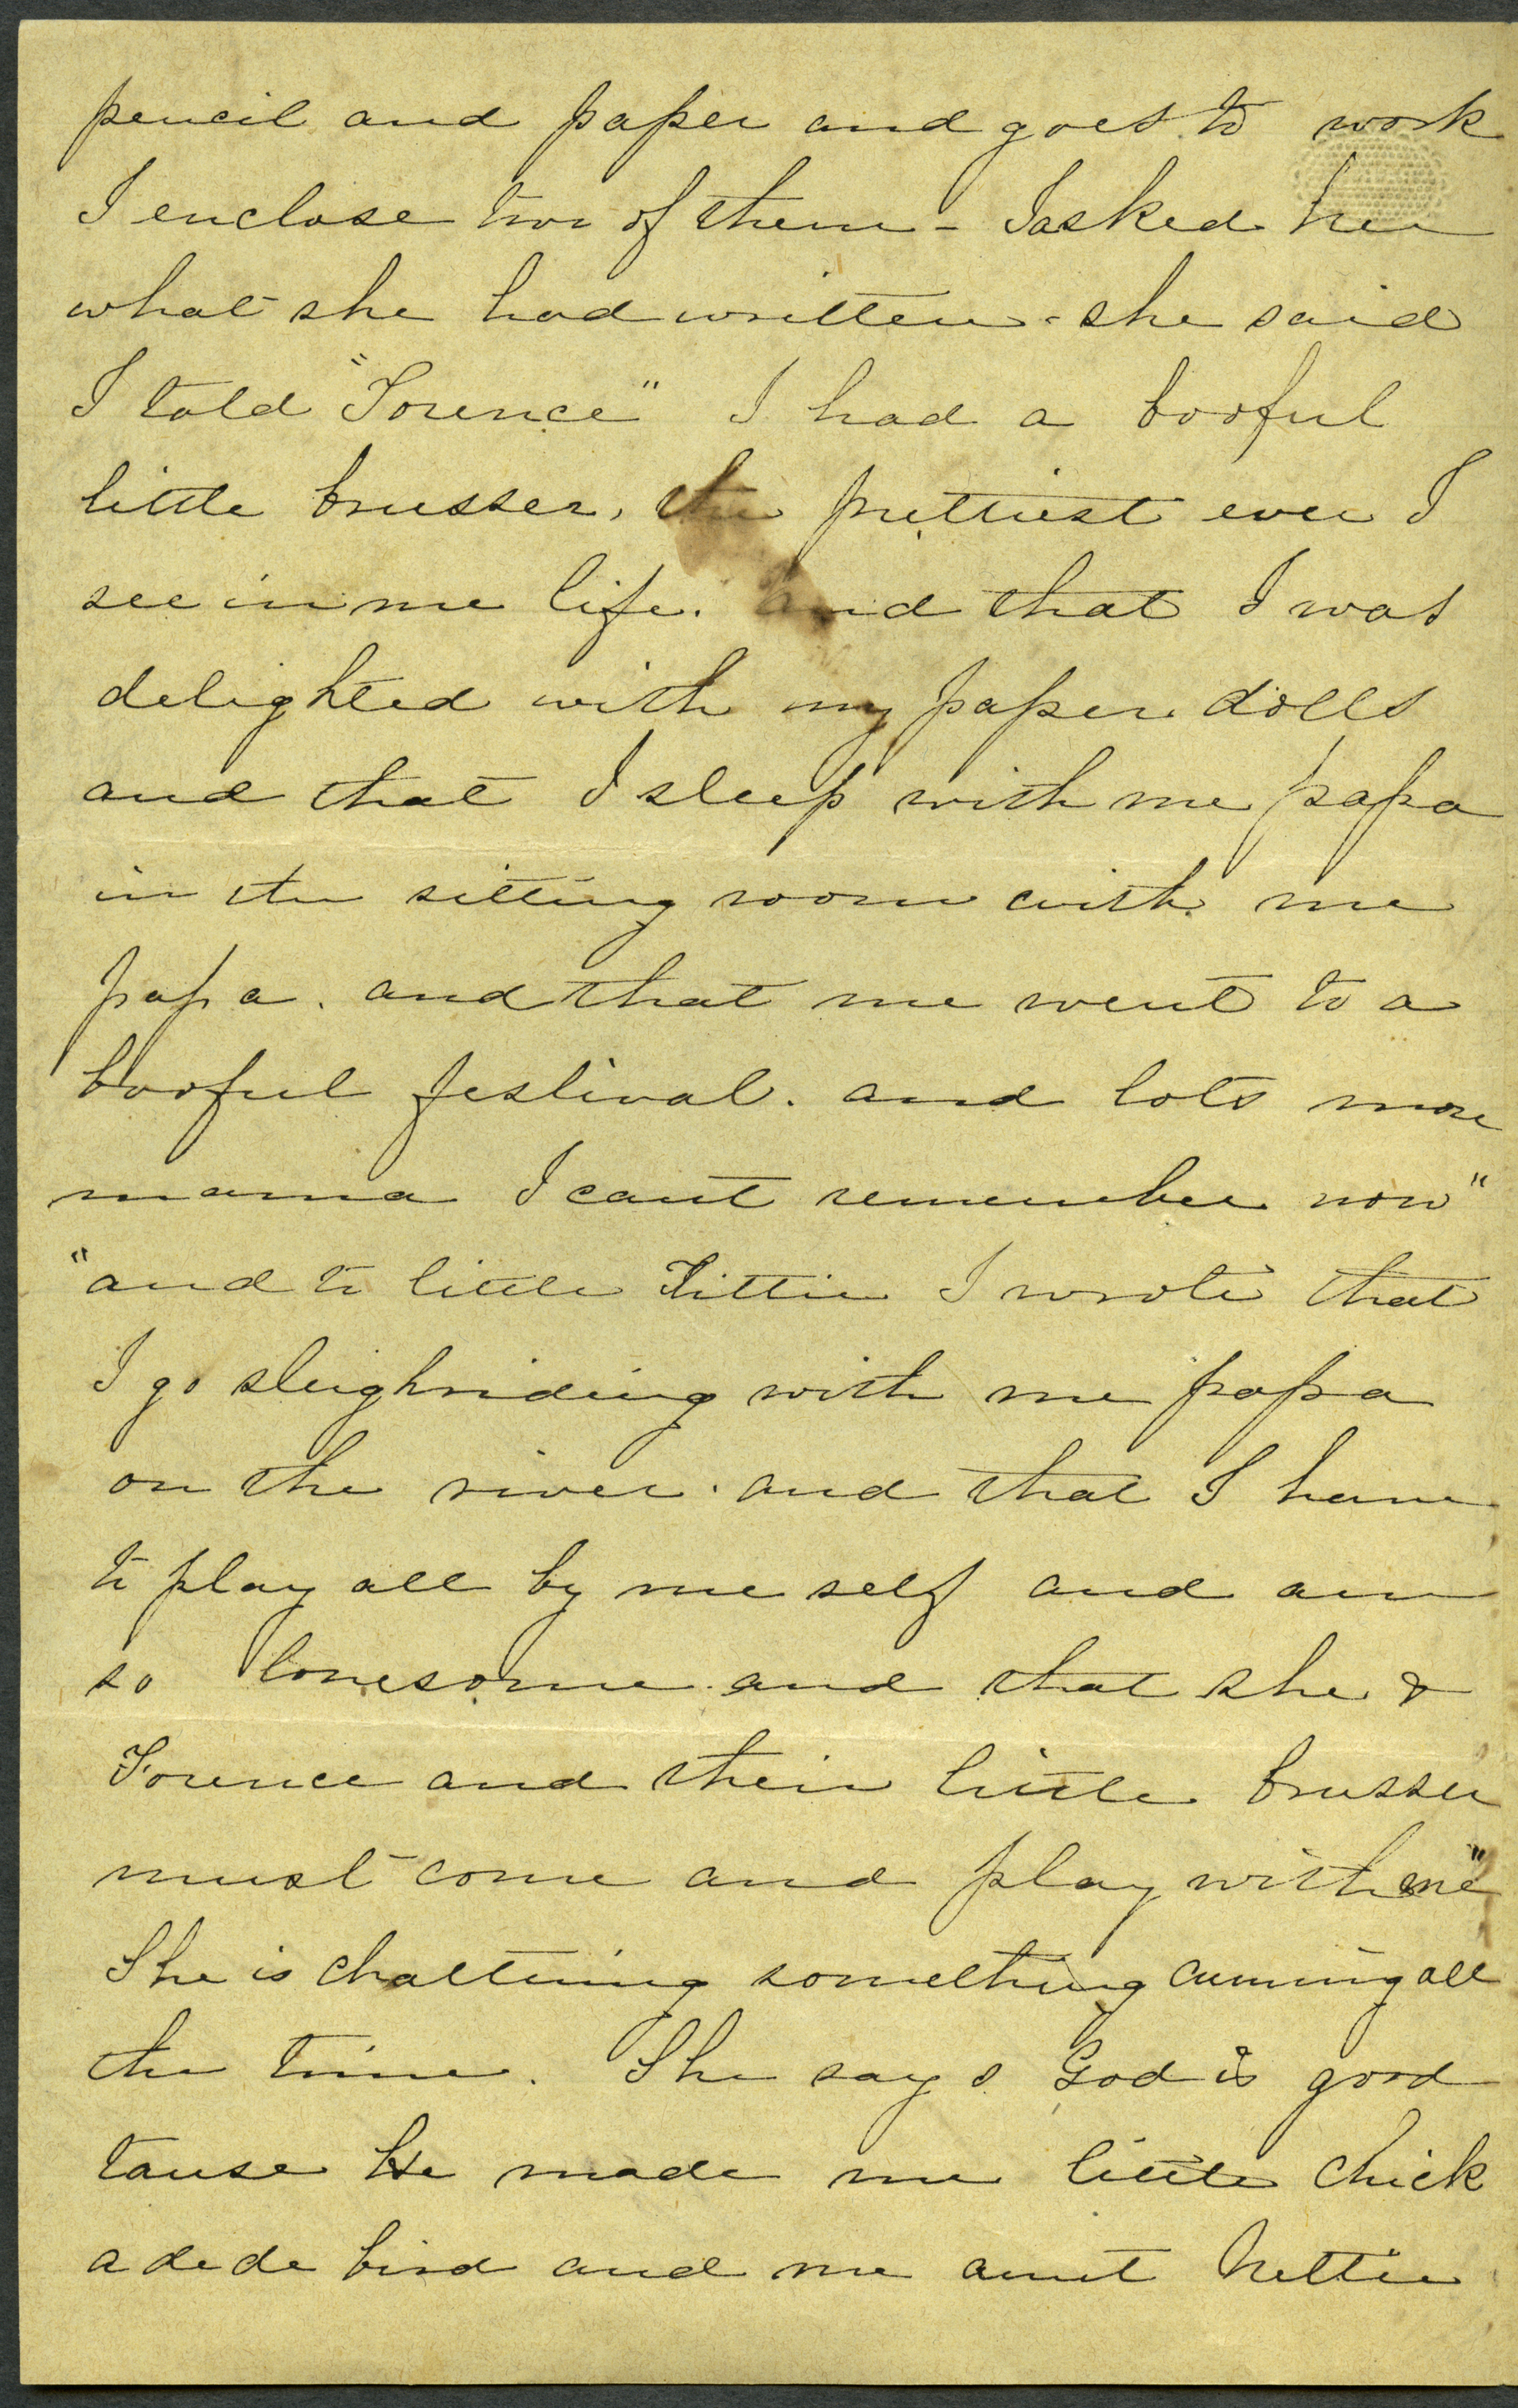 pencil and paper and goes to work
I enclose two of them - I asked her
what she had written - she said
I told "Forence" I had a booful
little brusser, the prettiest ever I
see in me life. and that I was
delighted with my paper dolls
and that I sleep with me papa
in the sitting room with me
papa. and that me went to a
booful festival. and lots more
mama I cant remember now"
"and to little Tittie I wrote that
I go sleighriding with me papa
on the river. and that I have
to play all by me self and am
so lonesome and that she &
Forence and their little brusser
must come and play with me"
She is chattering something cunning all
the time. She says God is good
tause He made me little chick
a de de bird and me aunt Nettie